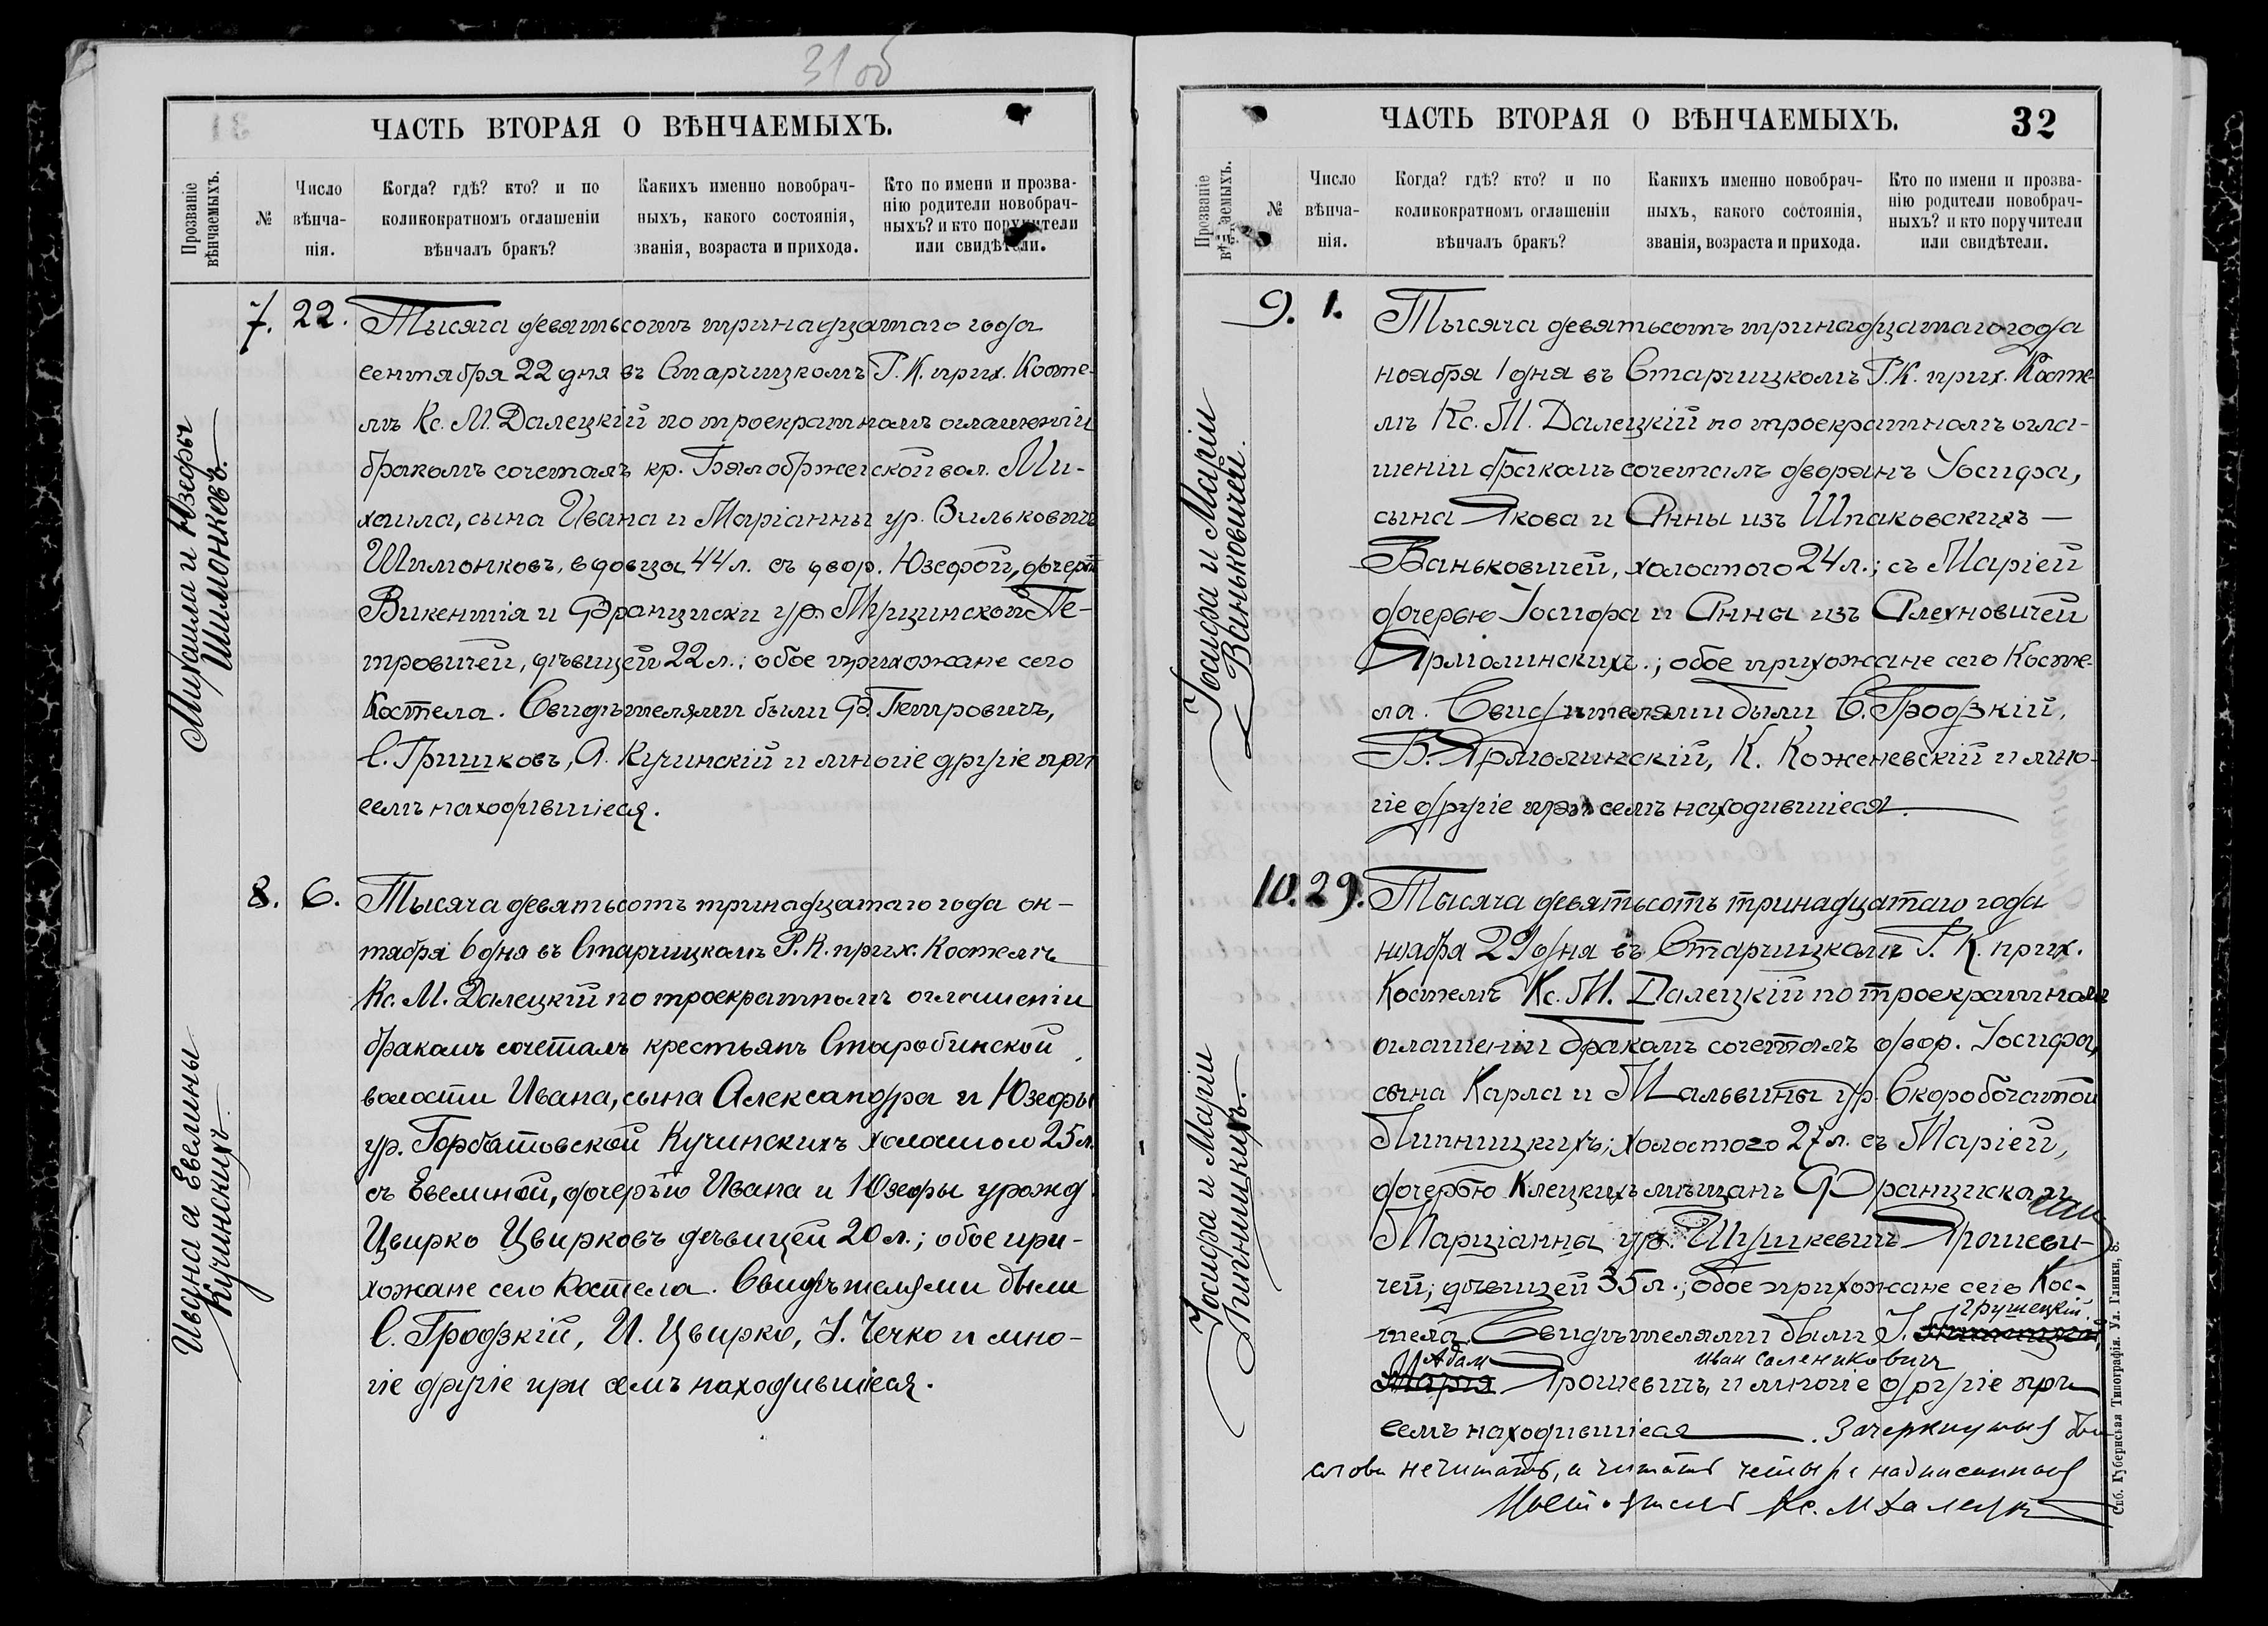 31 об
ЧАСТЬ ВТОРАЯ О ВѢНЧАЕМЫХЪ.
Прозваніе
вѣнчаемыхъ.
№
Число
вѣнча-
нія.
Когда? гдѣ? кто? и по
коликократномъ оглашеніи
вѣнчалъ бракъ?
Какихъ именно новобрач-
ныхъ, какого состоянія,
званія, возраста и прихода.
Кто по имени и прозва-
нію родители новобрач-
ныхъ? и кто поручители
или свидѣтели.
Михаила и Юзефы
Шимонковъ.
7. 22.
Тысяча девятьсотъ тринадцатаго года
сентября 22 дня въ Старчицкомъ Р. К. прих. Косте-
лѣ Кс. М. Далецкій по троекратномъ оглашеніи
бракомъ сочеталъ кр. Бялобржеской вол. Ми-
хаила, сына Ивана и Маріанны ур. Вильковичъ
Шимонковъ, вдовца 44 л. съ двор. Юзефой, дочерью
Викентія и Франциски ур. Мущинской Пе-
тровичей, дѣвицей 22 л.; обое прихожане сего
Костела. Свидѣтелями были Ф. Петровичъ,
С. Гришковъ, А. Кучинскій и многіе другіе при
семъ находившіеся.
Ивана и Евелины
Кучинскихъ
8. 6.
Тысяча девятьсотъ тринадцатаго года ок-
тября 6 дня въ Старчицкомъ Р. К. прих. Костелѣ
Кс. М. Далецкій по троекратномъ оглашеніи
бракомъ сочеталъ крестьянъ Старобинской
волости Ивана, сына Александра и Юзефы
ур. Горбатовской Кучинскихъ холостого 25 л.
съ Евелиной, дочерью Ивана и Юзефы урожд.
Цвирко Цвирковъ дѣвицей 20 л.; обое при-
хожане сего Костела. Свидѣтелями были
С. Гродзкій, И. Цвирко, І. Чечко и мно-
гіе другіе при семъ находившіеся.
ЧАСТЬ ВТОРАЯ О ВѢНЧАЕМЫХЪ.
32
Прозваніе
вѣнчаемыхъ.
№
Число
вѣнча-
нія.
Когда? гдѣ? кто? и по
коликократномъ оглашеніи
вѣнчалъ бракъ?
Какихъ именно новобрач-
ныхъ, какого состоянія,
званія, возраста и прихода.
Кто по имени и прозва-
нію родители новобрач-
ныхъ? и кто поручители
или свидѣтели.
Іосифа и Маріи
Ваньковичей.
9. 1.
Тысяча девятьсотъ тринадцатаго года
ноября 1 дня въ Старчицкомъ Р. К. прих. Косте-
лѣ Кс. М. Далецкій по троекратномъ огла-
шеніи бракомъ сочеталъ дворянъ Іосифа,
сына Якова и Анны изъ Шпаковскихъ —
Ваньковичей, холостого 24 л.; съ Маріей
дочерью Іосифа и Анны изъ Алехновичей
Ярмолинскихъ.; обое прихожане сего Косте-
ла. Свидѣтелями были С. Гродзкій,
В. Ярмолинскій, К. Коженевскій и мно-
гіе другіе при семъ находившіеся.
Іосифа и Маріи
Липницкихъ.
10. 29.
Тысяча девятьсотъ тринадцатаго года
ноября 29 дня въ Старчицкомъ Р. К. прих.
Костелѣ Кс. М. Далецкій по троекратномъ
оглашеніи бракомъ сочеталъ двор. Іосифа,
сына Карла и Мальвины ур. Скоробогатой
Липницкихъ; холостого 27 л. съ Маріей,
дочерью Клецкихъ мѣщанъ Франциска и
Марціанны ур. Шушкевичъ Ярошеви-
чей; дѣвицей 35 л.; обое прихожане сего Кос-
тела. Свидѣтелями были І. Грушецкій
Адам Ярошевичъ, Иван Саленикович и многіе другіе при
семъ находившіеся. Зачеркнутыя два
слова не читать, а читать четыре надписанныя
Настоятель Кс. М Далецкій
Спб. Губернская Типографія. Ул. Глинки, 8.